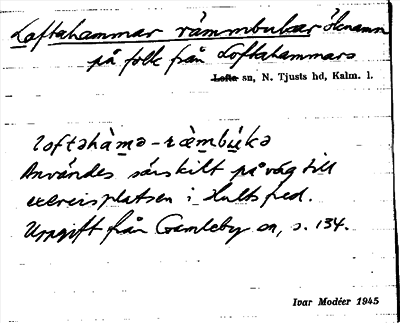 Loftahammar rämmbukar öknamn
på folk från Loftahammars
Lofta sn, N. Tjusts hd, Kalm. l.
loftəhàmə-ræ̀mbúkə
Användes särskilt på väg till
exercisplatsen i Hultsfred.
Uppgift från Gamleby sn, s. 134.
Ivar Modéer 1945